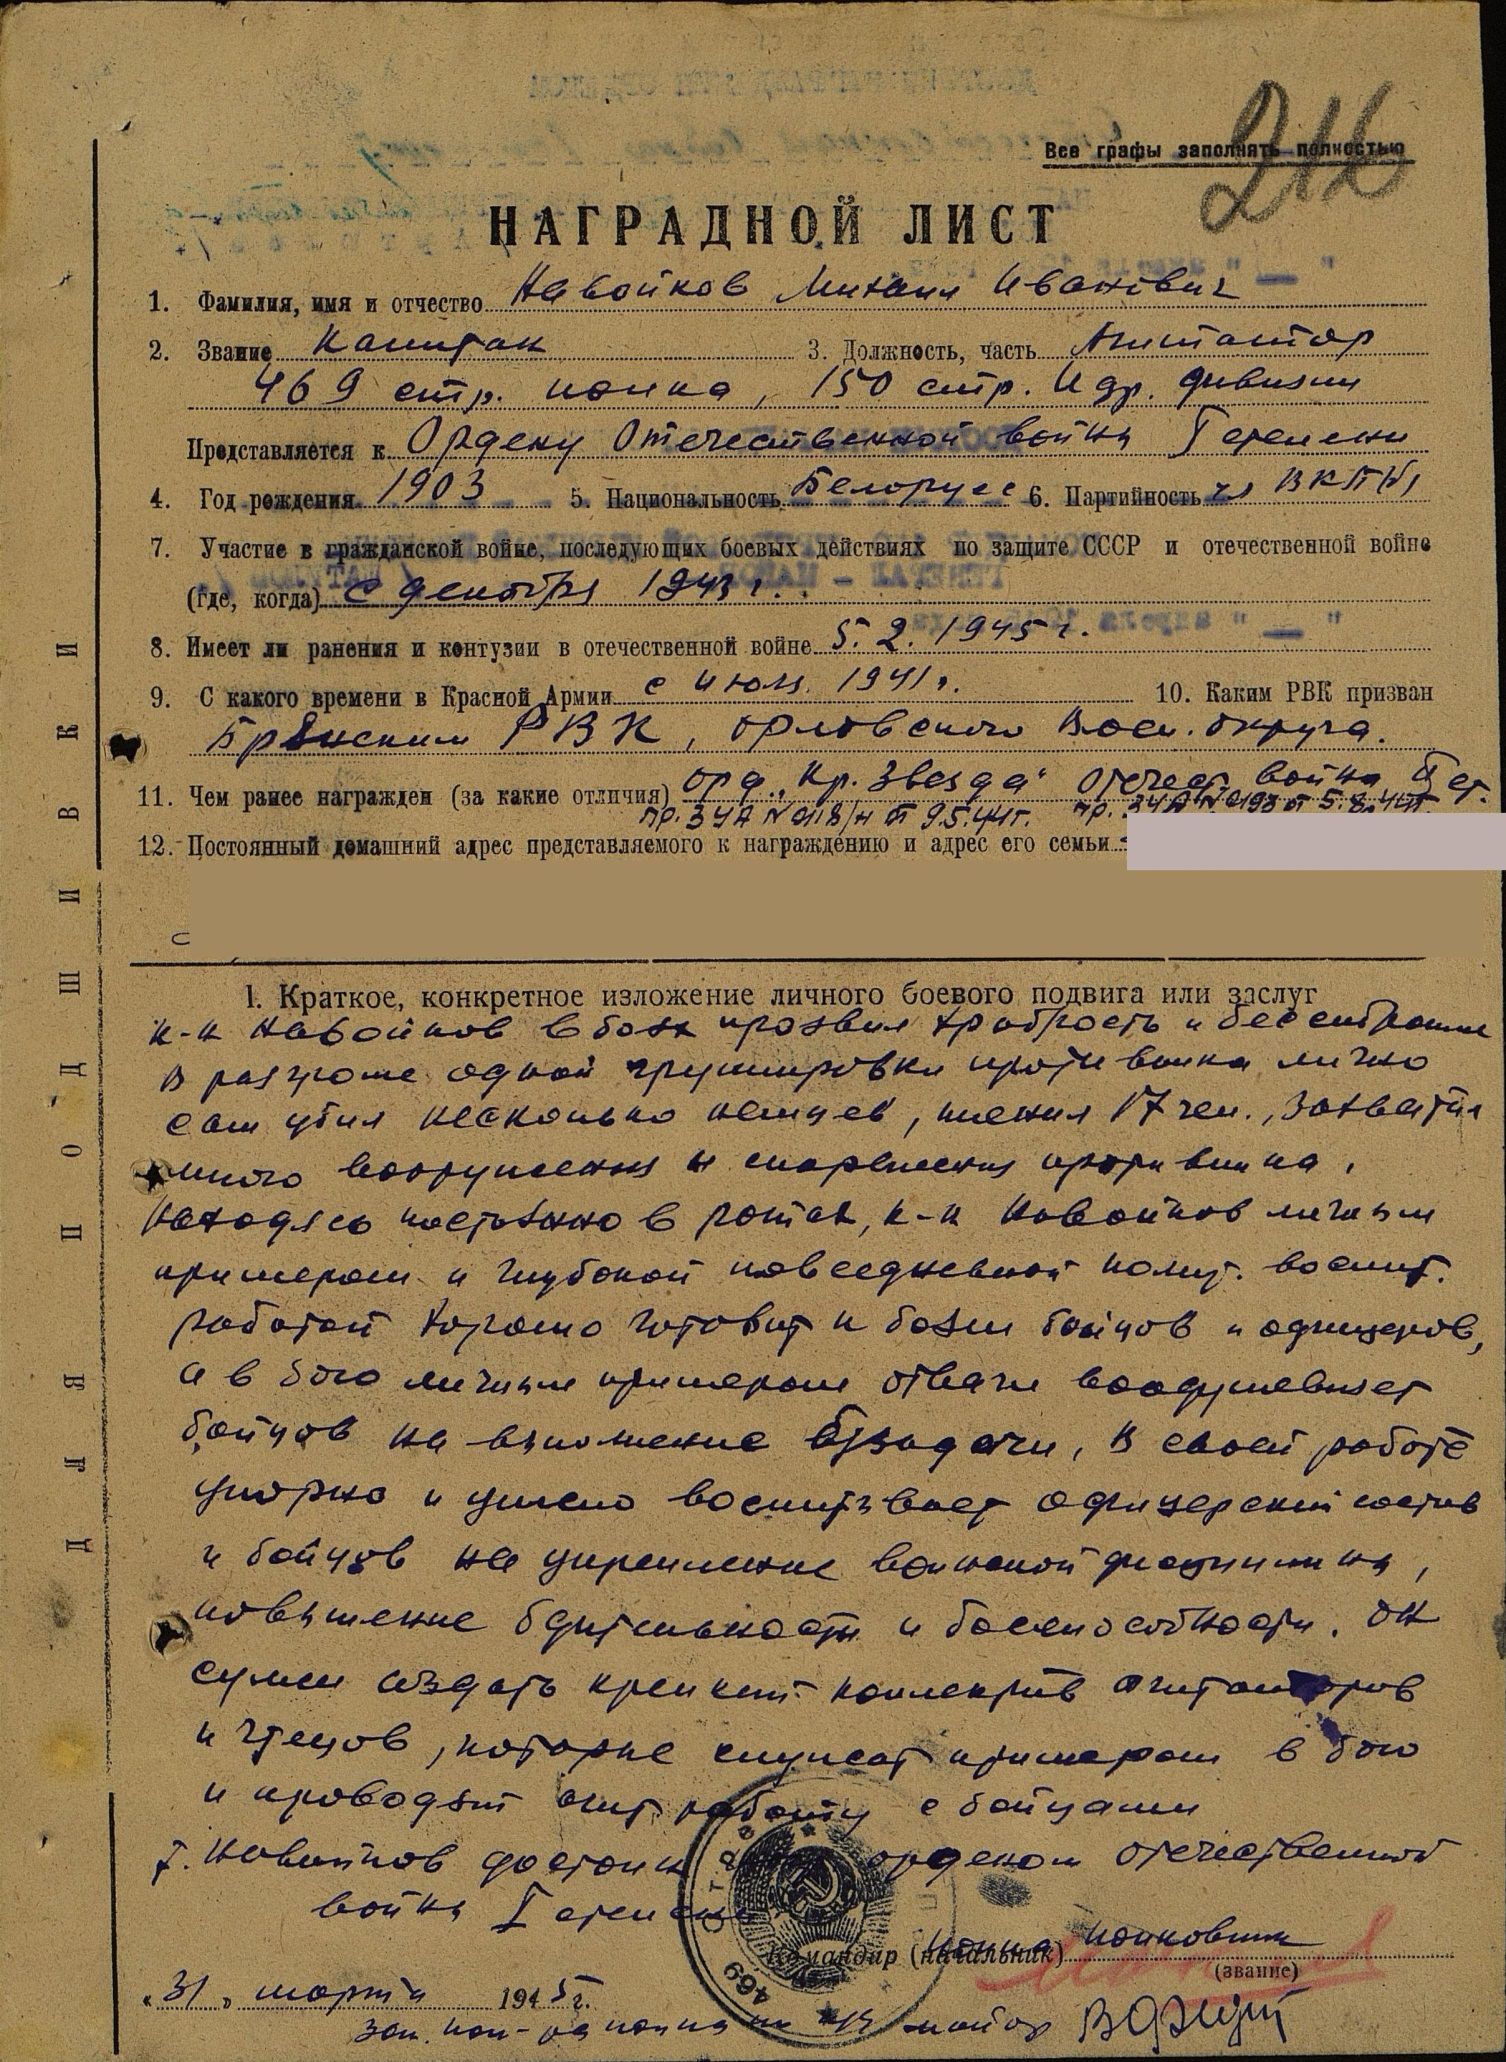 212
Все графы заполнять полностью
НАГРАДНОЙ ЛИСТ
1. Фамилия, имя и отчество Навойков Михаил Иванович
2. Звание Капитан 3. Должность, часть Агитатор
469 стр. полка, 150 стр. Идр. дивизии
Представляется к Ордену Отечественной войны I степени
4. Год рождения 1903 5. Национальность Белорусс 6. Партийность чл ВКП(б)
7. Участие в гражданской войне, последующих боевых действиях по защите СССР и отечественной войне
(где, когда) с декабря 1943 г.
8. Имеет ли ранения и контузии в отечественной войне 5.2.1945 г.
9. С какого времени в Красной Армии с июля 1941 г. 10. Каким РВК призван
Брянским РВК, Орловского Воен. округа.
11. Чем ранее награжден (за какие отличия) орд. „Кр. Звезда“ Отечест. войны II ст.
пр. 3 УА № 018/н от 9.5.44 г. пр. 3 УА № 0193 от 5.8.44 г.
12. Постоянный домашний адрес представляемого к награждению и адрес его семьи
1. Краткое, конкретное изложение личного боевого подвига или заслуг
к-н Навойков в боях проявил храбрость и бесстрашие
В разгроме одной группировки противника лично
сам убил несколько немцев, пленил 17 чел., захватил
много вооружения и снаряжения противника.
Находясь постоянно в ротах, к-н Навойков личным
примером и глубокой повседневной полит. воспит.
работой хорошо готовит к боям бойцов и офицеров,
а в бою личным примером отваги воодушевляет
бойцов на выполнение б/задачи, В своей работе
упорно и умело воспитывает офицерский состав
и бойцов на укрепление воинской дисциплины,
повышение бдительности и боеспособности. Он
сумел создать крепкий коллектив агитаторов
и чтецов, которые служат примером в бою
и проводят агитработу с бойцами
т. Навойков достоин орденом Отечественной
войны I степени
Командир (начальник) полка полковник
(звание)
„31„ марта 1945 г.
469
Зам. ком-ра полка по п/ч майор
ДЛЯ ПОДШИВКИ